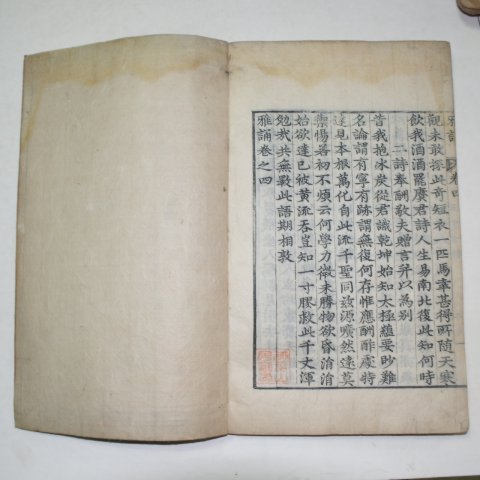 雅誦 卷四
觀未敢探此奇短衣一匹馬幸甚得所隨天寒
飲我酒酒罷賡君詩人生易南北復此知何時
二詩奉酬敬夫贈言并以爲別
昔我抱冰炭從君識乾坤始知太極蘊要眇難
名論謂有寧有跡謂無復何存惟應酬酢處特
達見本根萬化自此流千聖同玆源曠然遠莫
禦惕若初不煩云何學力微未勝物欲昏涓涓
始欲達已被黃流吞豈知一寸膠救此千丈渾
勉哉共無斁此語期相敦
雅誦卷之四